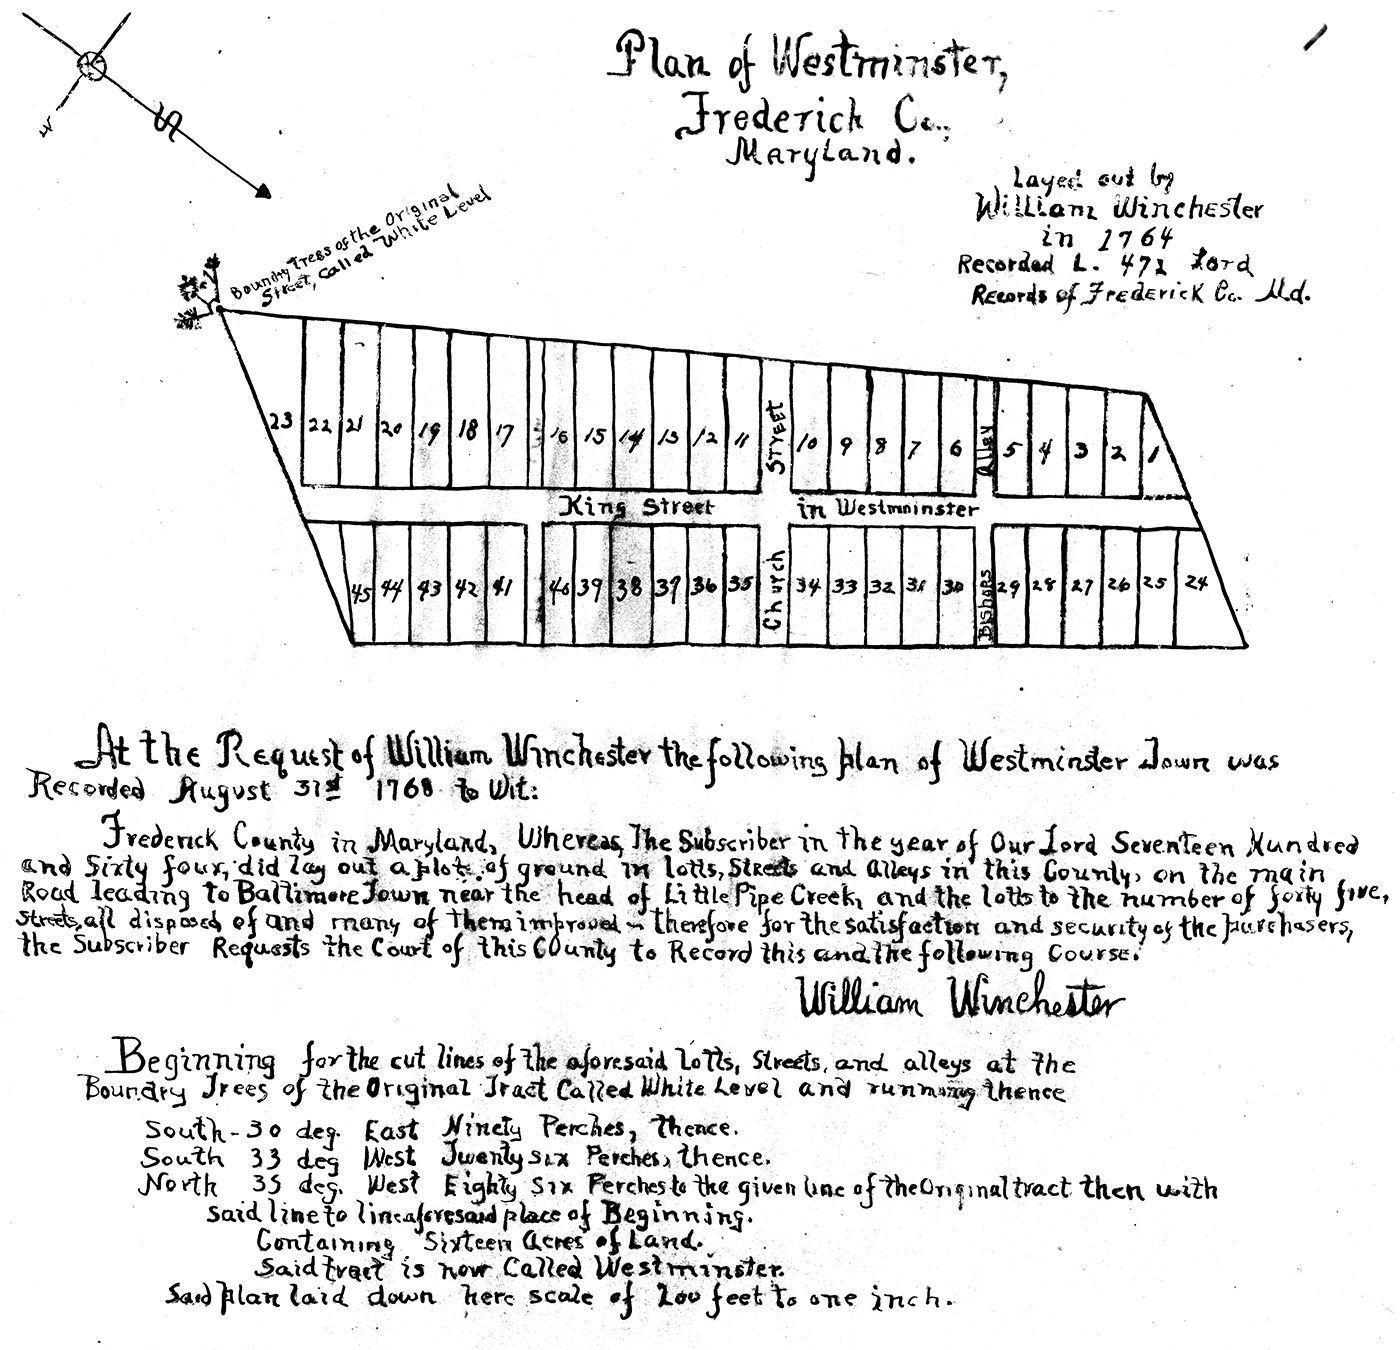 Plan of Westminster,
Frederick Co.,
Maryland.
Layed out by
William Winchester
in 1764
Recorded L. 472 Lord
Records of Frederick Co. Md.
S
Boundry Trees of the Original
Street, Called White Level
23 22 21 20 19 18 17 16 15 14 13 12 11 Street 10 9 8 7 6 Alley 5 4 3 2 1
King Street in Westminster
45 44 43 42 41 40 39 38 37 36 35 Church 34 33 32 31 30 Bishops 29 28 27 26 25 24
At the Request of William Winchester the following plan of Westminster Town was
Recorded August 31st 1768 to Wit:
Frederick County in Maryland, Whereas, The Subscriber in the year of Our Lord Seventeen Hundred
and Sixty four, did lay out a plot of ground in lotts, Streets and Alleys in this County, on the main
Road leading to Baltimore Town near the head of Little Pipe Creek, and the lotts to the number of forty five,
Streets, all disposed of and many of them improved ~ therefore for the satisfaction and security of the purchasers,
the Subscriber Requests the Court of this County to Record this and the following Course.
William Winchester
Beginning for the cut lines of the aforesaid lotts, Streets, and alleys at the
Boundry Trees of the Original Tract Called White Level and running thence
South - 30 deg. East Ninety Perches, thence.
South 33 deg West Twenty six Perches, thence.
North 35 deg. West Eighty Six Perches to the given line of the Original tract then with
said line to line aforesaid place of Beginning.
Containing Sixteen Acres of Land.
Said tract is now Called Westminster.
Said plan laid down here scale of 200 feet to one inch.